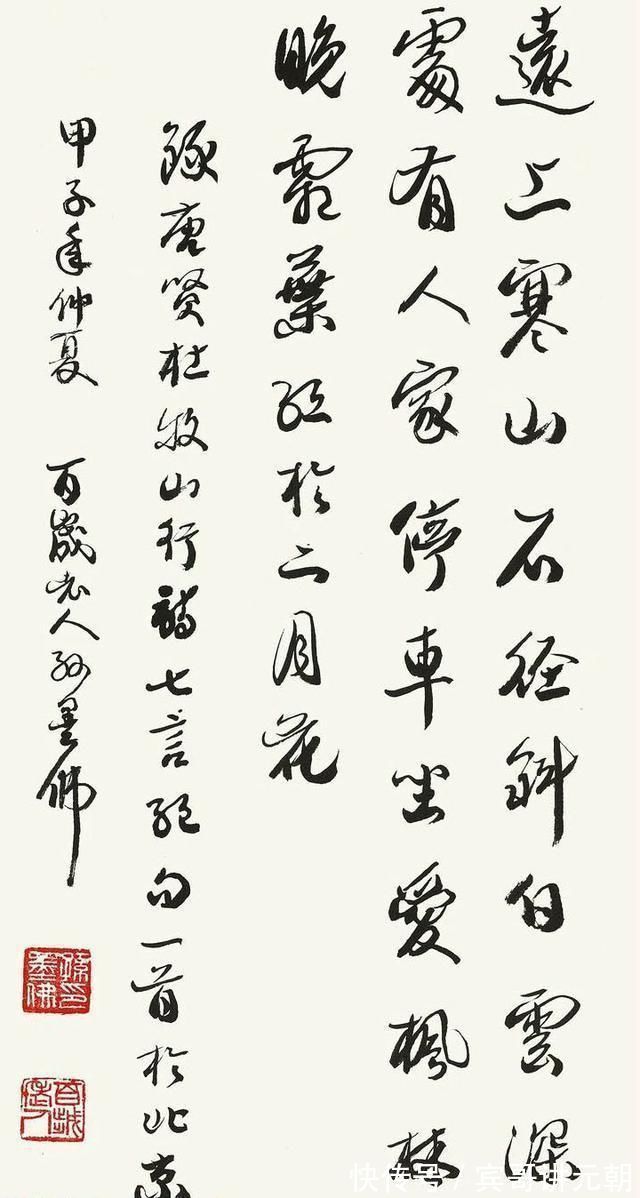 遠上寒山石徑斜白雲深
處有人家停車坐愛楓林
晚霜葉紅於二月花
錄唐賢杜牧山行詩七言絕句一首於北京
甲子年仲夏 百歲老人孫墨佛
孫墨佛印
百歲老人
快传号/宾哥讲元朝